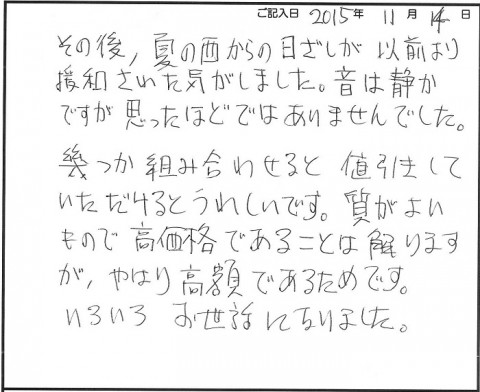 ご記入日 2015年 11月 14日
その後,夏の西からの日ざしが 以前より
援和された気がしました。音は静か
ですが 思ったほどではありませんでした。
幾つか組み合わせると 値引きして
いただけるとうれしいです。質がよい
もので高価格であることは解ります
が,やはり高額であるためです。
いろいろ お世話になりました。